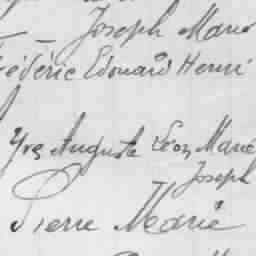 Joseph Marie
Frédéric Edouard Henri
Yves Auguste Léon Marie
Joseph
Pierre Marie